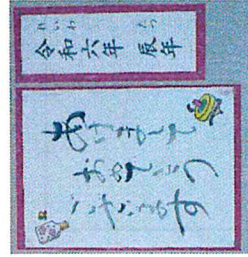 れいわ たつ
令和六年 辰年
あけまして
おめでとう
ございます